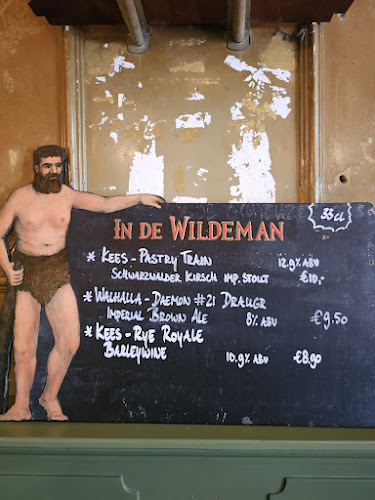 33 cl
IN DE WILDEMAN
* KEES - PASTRY TRAIN 12.9% ABV
SCHWARZWALDER KIRSCH IMP. STOUT €10,-
* WALHALLA - DAEMON #21 DRAUGR
IMPERIAL BROWN ALE 8% ABV €9.50
* KEES - RYE ROYALE
BARLEYWINE 10.9% ABV €8.90